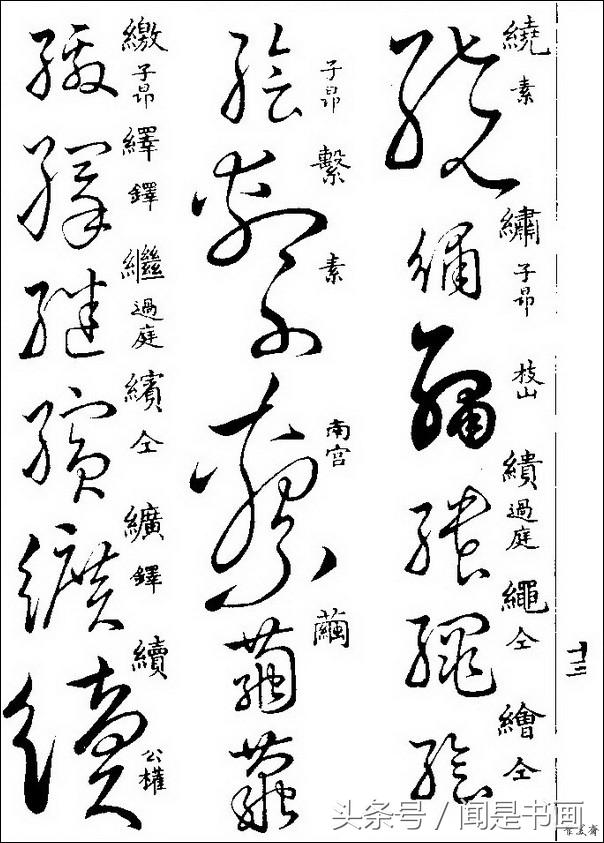 繞 素
繡 子昂
枝山
繢 過庭
繩 仝
繪 仝
子昂
繫 素
南宫
繭
繳 子昂
繹 鐸
繼 過庭
繽 仝
纊 鐸
續 公權
十三
头条号/闻是书画